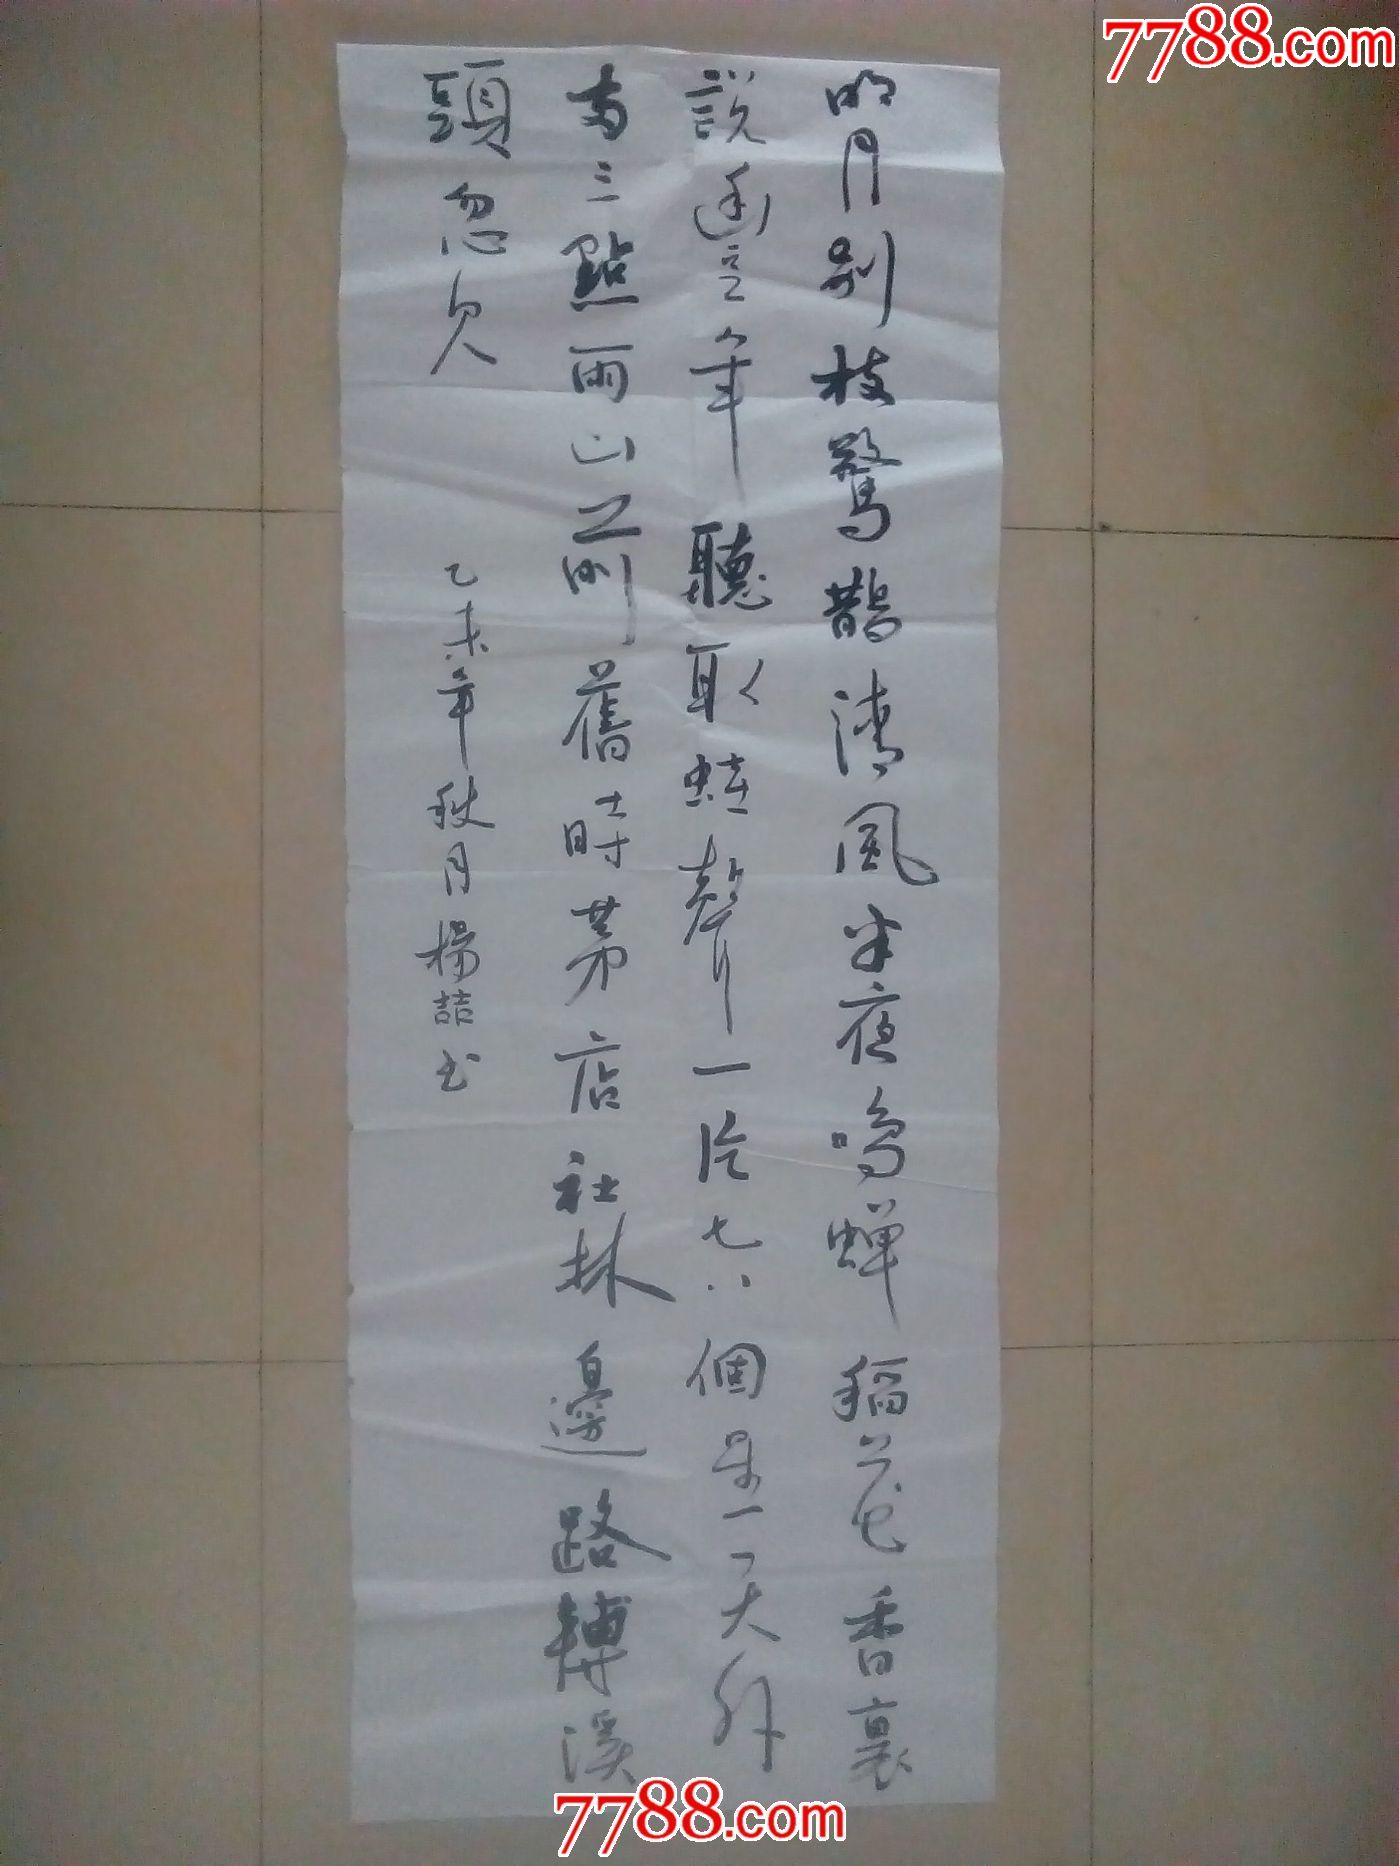 7788.com
明月别枝驚鵲清風半夜鳴蝉稻花香裏
説豐年聽取蛙聲一片七八個星天外
两三點雨山前舊時茅店社林邊路轉溪
頭忽見
乙未年秋月楊喆书
7788.com